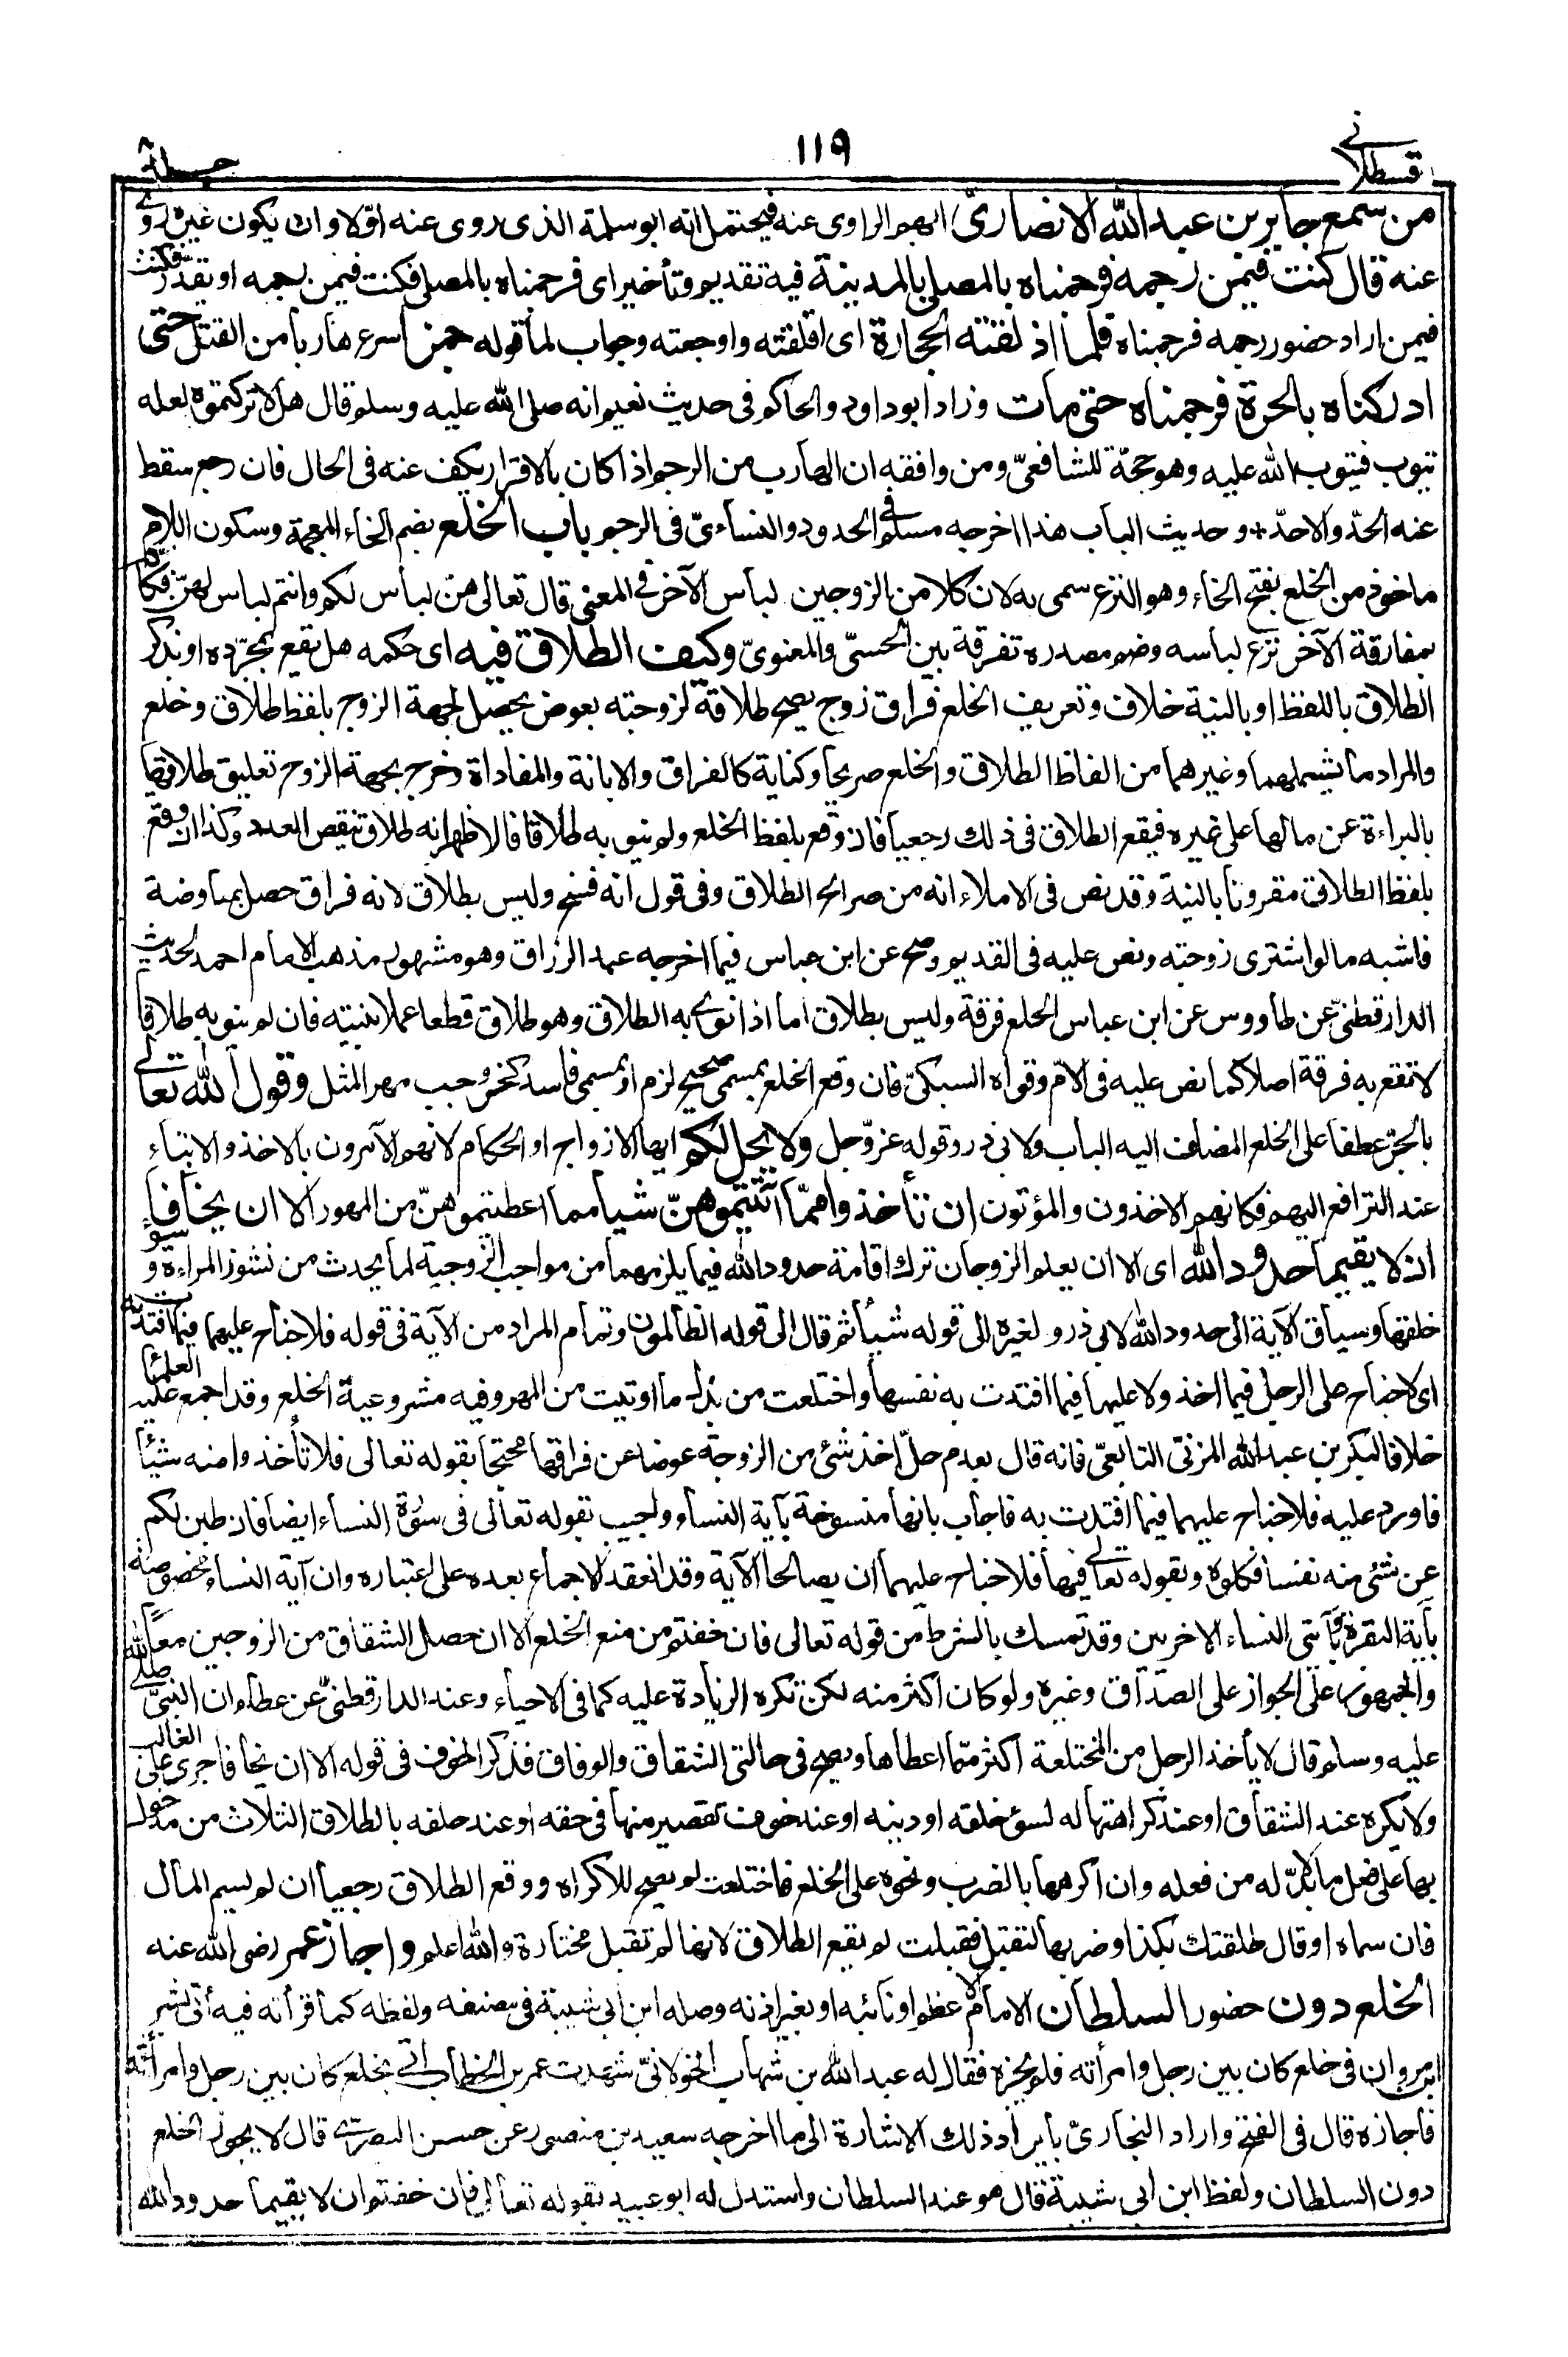 قسطلانی
۱۱۹
جلد ۸
من سمع جابر بن عبد الله الانصاریّ ابهم الراوی عنه فیحتمل انه ابو سلمة الذی روی عنه اوّلا وان یکون غیره روی
عنه قال کنت فیمن رجمه فرجمناه بالمصلی بالمدینة فیه تقدیم وتأخیر ای فرجمناه بالمصلی فکنت فیمن رجمه او یقدّر فکنت
فیمن اراد حضور رجمه فرجمناه فلما اذلقته الحجارة ای اقلقته واوجعته وجواب لما قوله جمز اسرع هاربا من القتل حتی
ادرکناه بالحرة فرجمناه حتی مات وزاد ابو داود والحاکم فی حدیث نعیم انه صلی الله علیه وسلم قال هلا ترکتموه لعله
یتوب فیتوب الله علیه وهو حجّة للشافعیّ ومن وافقه ان الهارب من الرجم اذا کان بالاقرار یکف عنه فی الحال فان رجع سقط
عنه الحدّ والا حدّ * وحدیث الباب هذا اخرجه مسلم فی الحدود والنساءیّ فی الرجم باب الخلع بضم الخاء المعجمة وسکون اللام
ماخوذ من الخلع بفتح الخاء وهو النزع سمی به لان کلا من الزوجین لباس الآخر فی المعنی قال تعالی هنّ لباس لکم وانتم لباس لهنّ فکانّه
بمفارقة الآخر نزع لباسه وضم مصدره تفرقة بین الحسیّ والمعنویّ وکیف الطلاق فیه ای حکمه هل یقع بمجرّده او بذکر
الطلاق باللفظ او بالنیة خلاف وتعریف الخلع فراق زوج یصح طلاقه لزوجته بعوض یحصل لجهة الزوج بلفظ طلاق وخلع
والمراد ما یشملهما وغیرهما من الفاظ الطلاق والخلع صریحا وکنایة کالفراق والابانة والمفاداة وخرج بجهة الزوج تعلیق طلاقها
بالبراءة عن مالها علی غیره فیقع الطلاق فی ذلک رجعیا فان وقع بلفظ الخلع ولم ینو به طلاقا فالاظهر انه طلاق ینقص العدد وکذا ان وقع
بلفظ الطلاق مقرونا بالنیة وقد نص فی الاملاء انه من صرائح الطلاق وفی قول انه فسخ ولیس بطلاق لانه فراق حصل بمعاوضة
فاشبه ما لو اشتری زوجته ونص علیه فی القدیم وصح عن ابن عباس فیما اخرجه عبد الرزاق وهو مشهور مذهب الامام احمد لحدیث
الدارقطنیّ عن طاووس عن ابن عباس الخلع فرقة ولیس بطلاق اما اذا نوی به الطلاق وهو طلاق قطعا عملا بنیته فان لم ینو به طلاقا
لا تقع به فرقة اصلا کما نص علیه فی الامّ وقواه السبکیّ فان وقع الخلع بمسمی صحیح لزم او بمسمی فاسد کخمر وجب مهر المثل وقول الله تعالی
بالجرّ عطفا علی الخلع المضاف الیه الباب ولابی ذر وقوله عزّ وجل ولا یحل لکم ایها الازواج او الحکام لانهم الآمرون بالاخذ والایتاء
عند الترافع الیهم فکانهم الاخذون والمؤتون ان تأخذوا ممّا آتیتموهنّ شیأ مما اعطیتموهنّ من المهور الا ان یخافا
ان لا یقیما حدود الله ای الا ان یعلم الزوجان ترک اقامة حدود الله فیما یلزمهما من مواجب الزوجیة لما یحدث من نشوز المراءة وسوء
خلقها وسیاق الآیة الی حدود الله لابی ذر ولغیره الی قوله شیأ ثم قال الی قوله الظالمون وتمام المراد من الآیة فی قوله فلا جناح علیهما فیما افتدت به
ای لا جناح علی الرجل فیما اخذ ولا علیها فیما افتدت به نفسها واختلعت من بذل ما اوتیت من المهر وفیه مشروعیة الخلع وقد اجمع علیه العلماء
خلافا لبکر بن عبد الله المزنیّ التابعیّ فانه قال بعدم حلّ اخذ شئ من الزوجة عوضا عن فراقها محتجا بقوله تعالی فلا تأخذوا منه شیئا
فاورد علیه فلا جناح علیهما فیما افتدت به فاجاب بانها منسوخة بآیة النساء واجیب بقوله تعالی فی سورة النساء ایضا فان طبن لکم
عن شئ منه نفسا فکلوه وبقوله تعالی فیها فلا جناح علیهما ان یصالحا الآیة وقد انعقد الاجماع بعده علی اعتباره وان آیة النساء مخصوصة
بآیة البقرة وبآیتی النساء الاخریین وقد تمسک بالشرط من قوله تعالی فان خفتم من منع الخلع الا ان حصل الشقاق من الزوجین معا
والجمهور علی الجواز علی الصداق وغیره ولو کان اکثر منه لکن تکره الزیادة علیه کما فی الاحیاء وعند الدارقطنیّ عن عطاء ان النبیّ صلی الله
علیه وسلم قال لا یأخذ الرجل من المختلعة اکثر ممّا اعطاها ویصح فی حالتی الشقاق والوفاق فذکر الخوف فی قوله الا ان یخافا جری علی الغالب
ولا یکره عند الشقاق او عند کراهتها له لسوء خلقه او دینه او عند خوف تقصیر منها فی حقه او عند حلفه بالطلاق الثلاث من مدخول
بها علی فعل ما لا بدّ له من فعله وان اکرهها بالضرب ونحوه علی الخلع فاختلعت لم یصح للاکراه ووقع الطلاق رجعیا ان لم یسم المال
فان سماه او قال طلقتک بکذا وضربها لتقبل فقبلت لم یقع الطلاق لانها لم تقبل مختارة والله اعلم واجاز عمر رضی الله عنه
الخلع دون حضور السلطان الامام الاعظم او نائبه او بغیر اذنه وصله ابن ابی شیبة فی مصنفه ولفظه کما قرأته فیه أتی بشر
ابن مروان فی خلع کان بین رجل وامرأته فلم یجزه فقال له عبد الله بن شهاب الخولانیّ شهدت عمر بن الخطاب اتی بخلع کان بین رجل وامرأته
فاجازه قال فی الفتح واراد البخاریّ بایراد ذلک الاشارة الی ما اخرجه سعید بن منصور عن حسن البصریّ قال لا یجوز الخلع
دون السلطان ولفظ ابن ابی شیبة قال هو عند السلطان واستدل له ابو عبید بقوله تعالی فان خفتم ان لا یقیما حدود الله